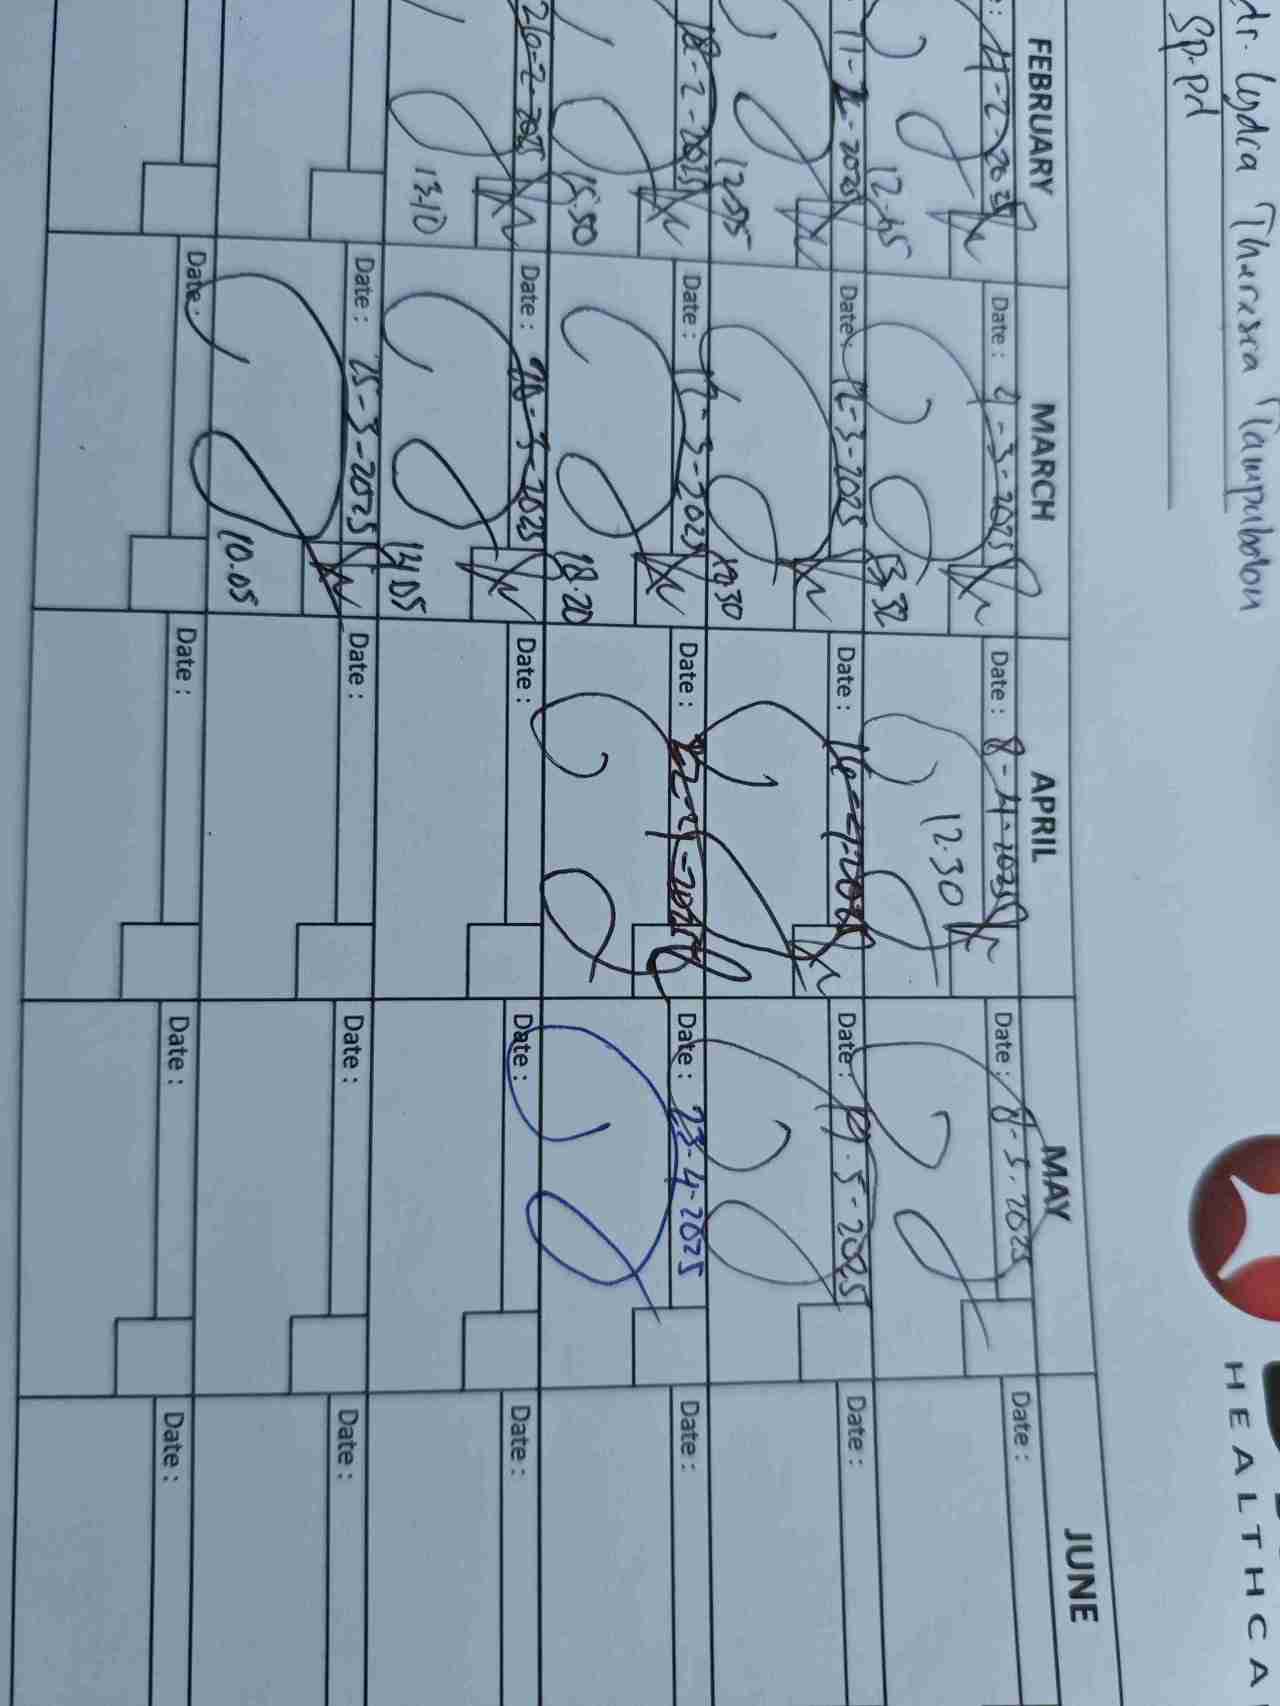 dr. Lydia Theresia Tampubolon
Sp.Pd
HEALTHCA
FEBRUARY MARCH APRIL MAY JUNE
4-2-2025 Date : 4-3-2025 Date : 8-4-2025 Date : 8-5-2025 Date :
12.45 13.32 12.30
11-2-2025 Date : 12-3-2025 Date : 16-4-2025 Date : 19-5-2025 Date :
12.55 12.30
18-2-2025 Date : 17-3-2025 Date : 22-4-2025 Date : 23-4-2025 Date :
15.50 18.20
26-2-2025 Date : 20-3-2025 Date : Date : Date :
13.10 14.05
Date : 25-3-2025 Date : Date : Date :
10.05
Date : Date : Date : Date :